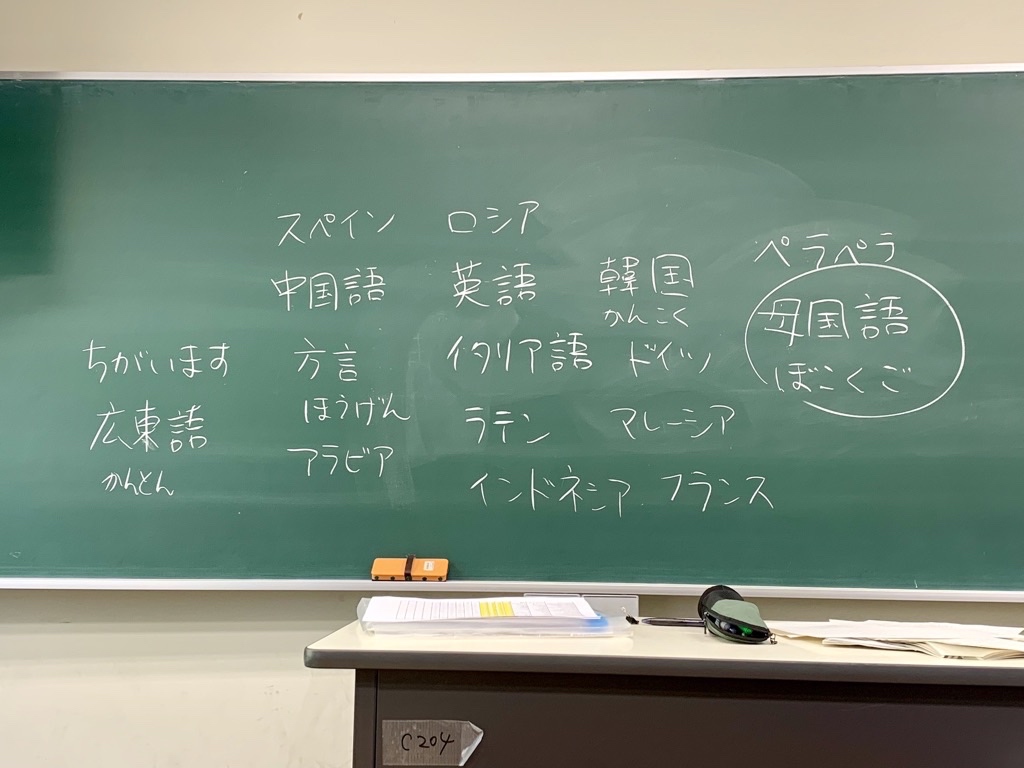 スペイン ロシア
ペラペラ
中国語 英語 韓国
かんこく
母国語
ぼこくご
ちがいます 方言 イタリア語 ドイツ
ほうげん
広東語 ラテン マレーシア
かんとん アラビア
インドネシア フランス
C204